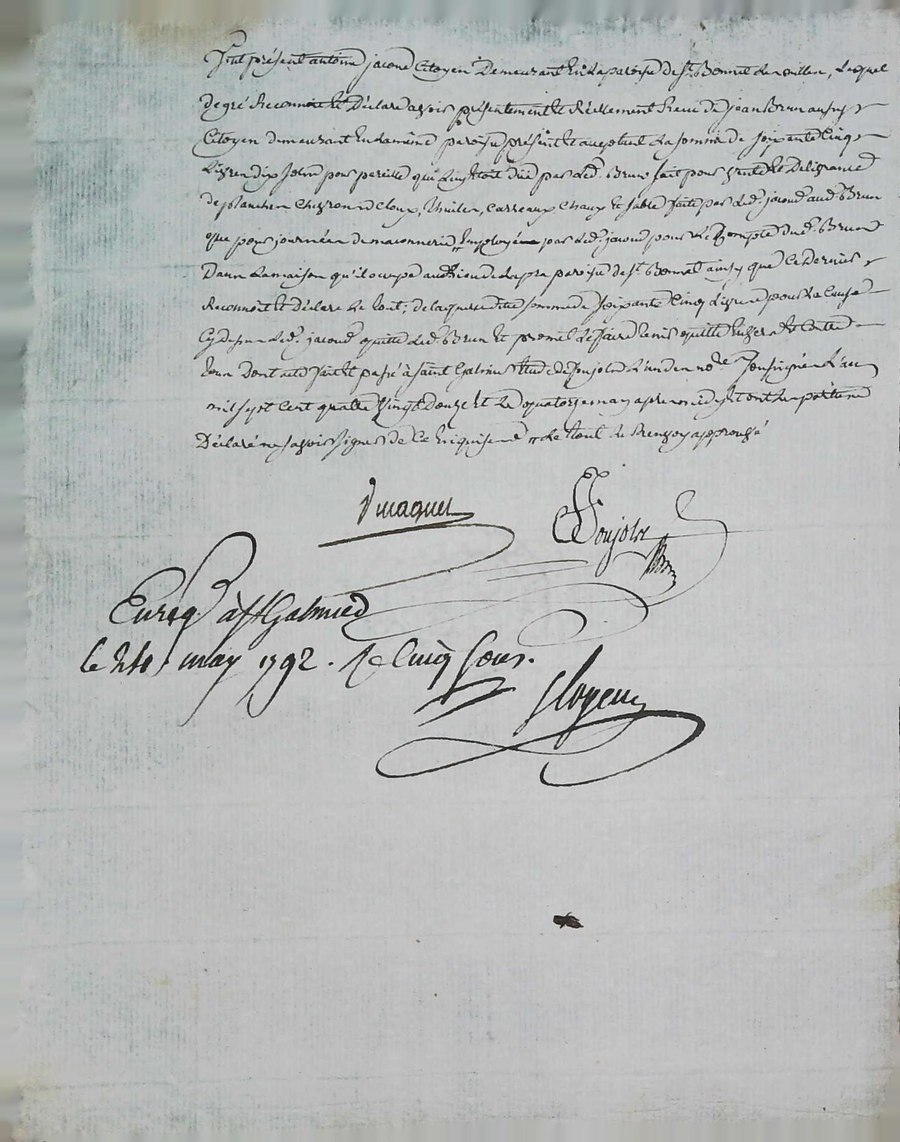 Fut présent antoine jacoud Citoyen Demeurant En la paroisse de st. Bonnet Les oulles, Lequel
de gré Reconnoit et Déclare avoir présentement et Réellement Receu de jean Brun aussy
Citoyen demeurant En la même paroisse présent et aceptant La somme de soixante Cinq
Livres dix sols pour pareille qui Luy étoit düe par Led. Brun soit pour vente et Délivrance
de planches Chevrons Cloux, thuiles, Carreaux Chaux et sable faite par Led. jacoud aud. Brun
que pour journées de maconnerie Employées par Led. jacoud pour Le Compte dud. Brun
Dans La maison qu'il ocupe au de La paroisse de st. Bonnet ainsy que Ce Dernier
Reconnoit et déclare Le tout; de laquelle ditte somme de soixante Cinq Livres pour La Cause
Cy dessus Led. jacoud quitte Led. Brun et promet Le faire tenir quitte Envers et Contre
tous Dont acte fait et passé à saint Galmier Etude de Poujols L'un des nores. soussignés L'an
mil sept Cent quatre vingt Douze et Le quatorze may apres midy et ont Les parties
Déclaré ne savoir signer de Ce Enquises Le Renvoy approuvé
Poujols
Enreg. à st Galmier
le 24 may 1792. Rc Cinq sous.